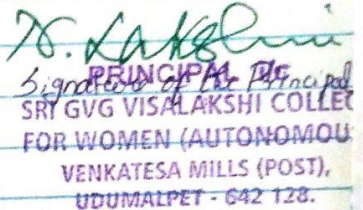 N. Lakshmi
Signature of the Principal
PRINCIPAL
SRI GVG VISALAKSHI COLLEG
FOR WOMEN (AUTONOMOU
VENKATESA MILLS (POST),
UDUMALPET - 642 128.